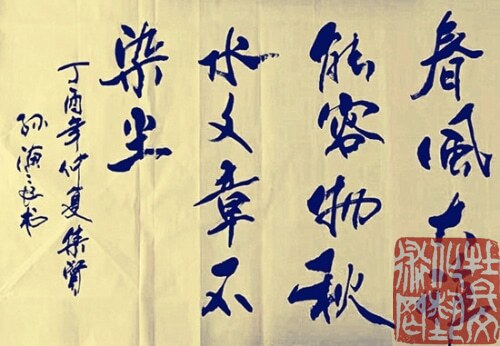 春風大雅
能容物秋
水文章不
染尘
丁酉年仲夏集贤